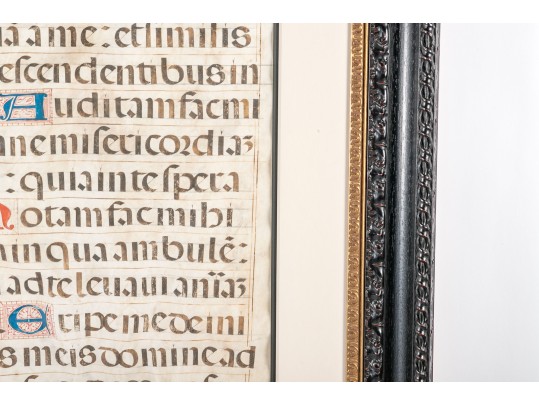 a me: et similis
escendentibus in
Auditam fac mi
ne misericordiaz
: quia in te spera
Notam fac mihi
in qua ambulē:
ad te levavi anīaz
Eripe me de ini
s meis domine ad